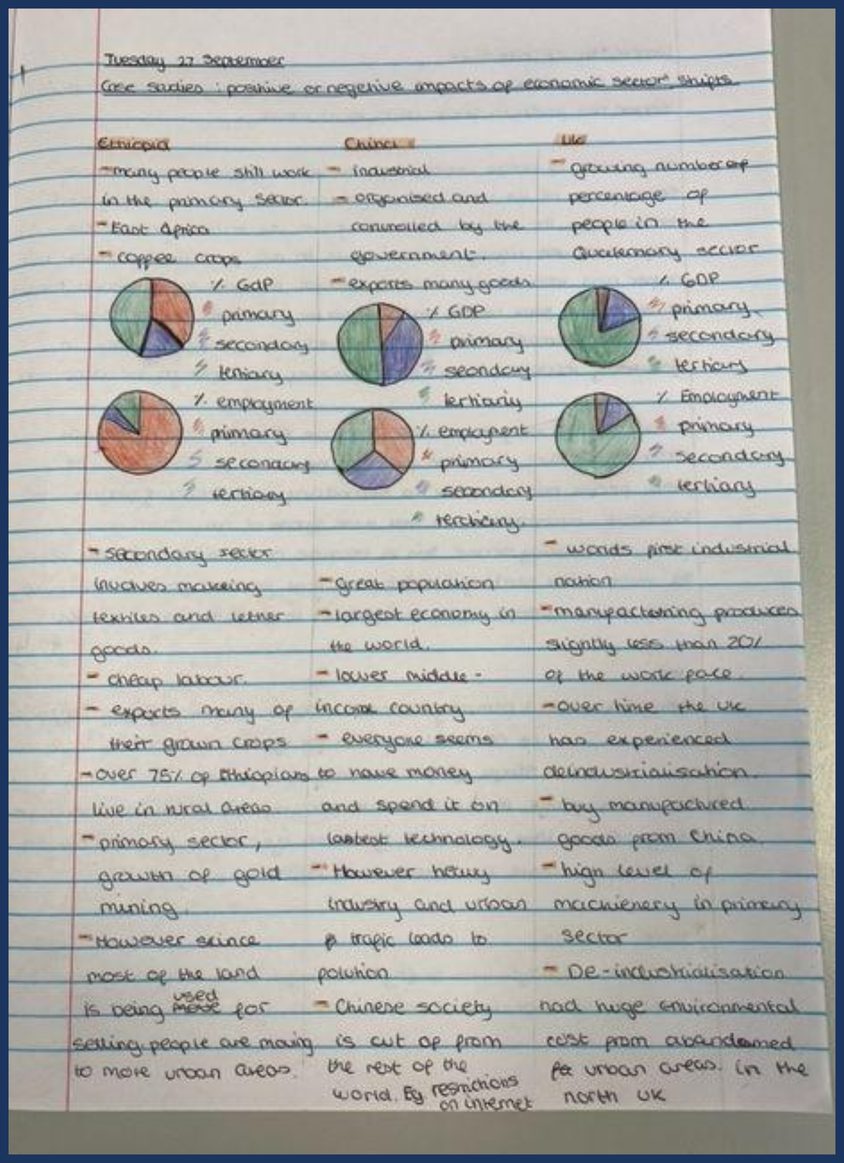 Tuesday 27 September
Case studies : positive or negetive impacts of economic sector shifts
Ethiopia
- many people still work
in the primary sector.
- East Africa
- coffee crops
% GDP
primary
secondary
tertiary
% employment
primary
secondary
tertiary
- secondary sector
involves makeing
textiles and lether
goods.
- cheap labour.
- exports many of
their grown crops
- over 75% of Ethiopians
live in rural areas
- primary sector,
growth of gold
mining.
- However scince
most of the land
is being used for
selling, people are moving
to more urban areas.
China
- industrial
- organised and
controlled by the
government.
- exports many goods
% GDP
primary
seondary
tertiariy
% employment
primary
secondary
terchiary.
- great population
- largest economy in
the world.
- lower middle-
income country
- everyone seems
to have money
and spend it on
lastest technology.
- However heavy
industry and urban
trafic leads to
polution
- Chinese society
is cut of from
the rest of the
world. Eg restrictions
on internet
UK
- growing number
percentage of
people in the
Quaternary sector
% GDP
primary
secondary
tertiary
% Employment
primary
secondary
tertiary
- worlds first industrial
nation
- manufactering produces
slightly less than 20%
of the work force.
- over time the UK
has experienced
deindustrialisation.
- buy manufactured
goods from China
- high level of
machienery in primary
sector
- De-industrialisation
had huge environmental
cost from abandamed
urban areas. in the
north UK